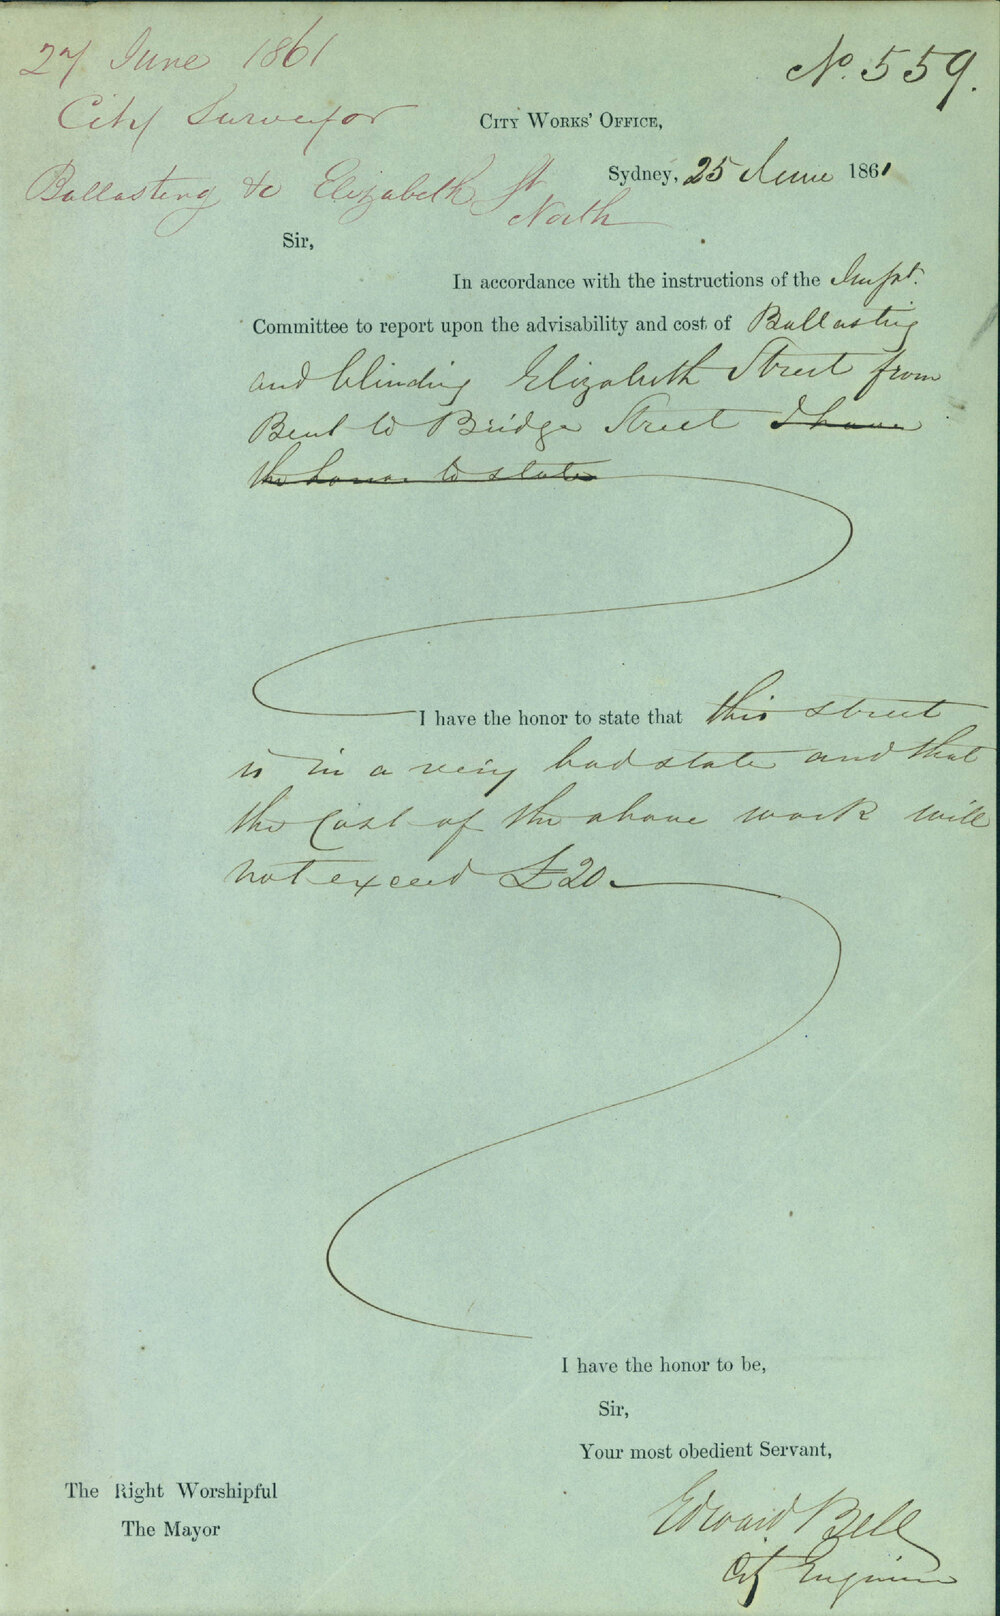 27 June 1861
City Surveyor
Ballasting &c Elizabeth St
North
No. 559.
City Works' Office,
Sydney, 25 June 1861
Sir,
In accordance with the instructions of the Impt.
Committee to report upon the advisability and cost of Ballasting
and blinding Elizabeth Street from
Bent to Bridge Street I have
the honor to state
I have the honor to state that this street
is in a very bad state and that
the Cost of the above work will
not exceed £20.
I have the honor to be,
Sir,
Your most obedient Servant,
Edward Bell
City Engineer
The Right Worshipful
The Mayor